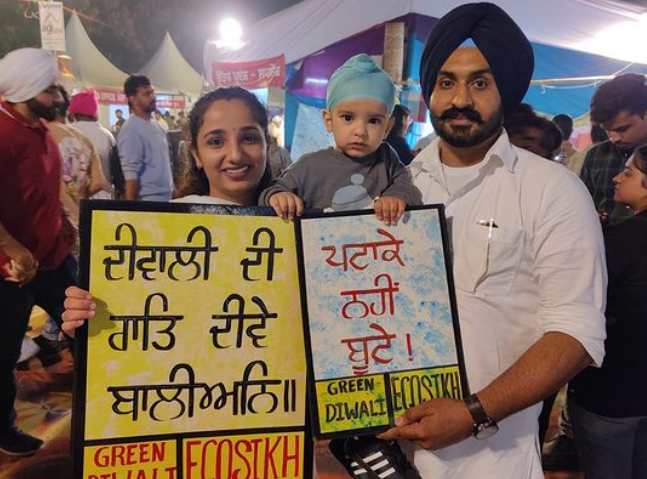 ਦੀਵਾਲੀ ਦੀ
ਰਾਤਿ ਦੀਵੇ
ਬਾਲੀਅਨਿ॥
GREEN
DIWALI
ECOSIKH
ਪਟਾਕੇ
ਨਹੀਂ
ਬੂਟੇ !
GREEN
DIWALI
ECOSIKH